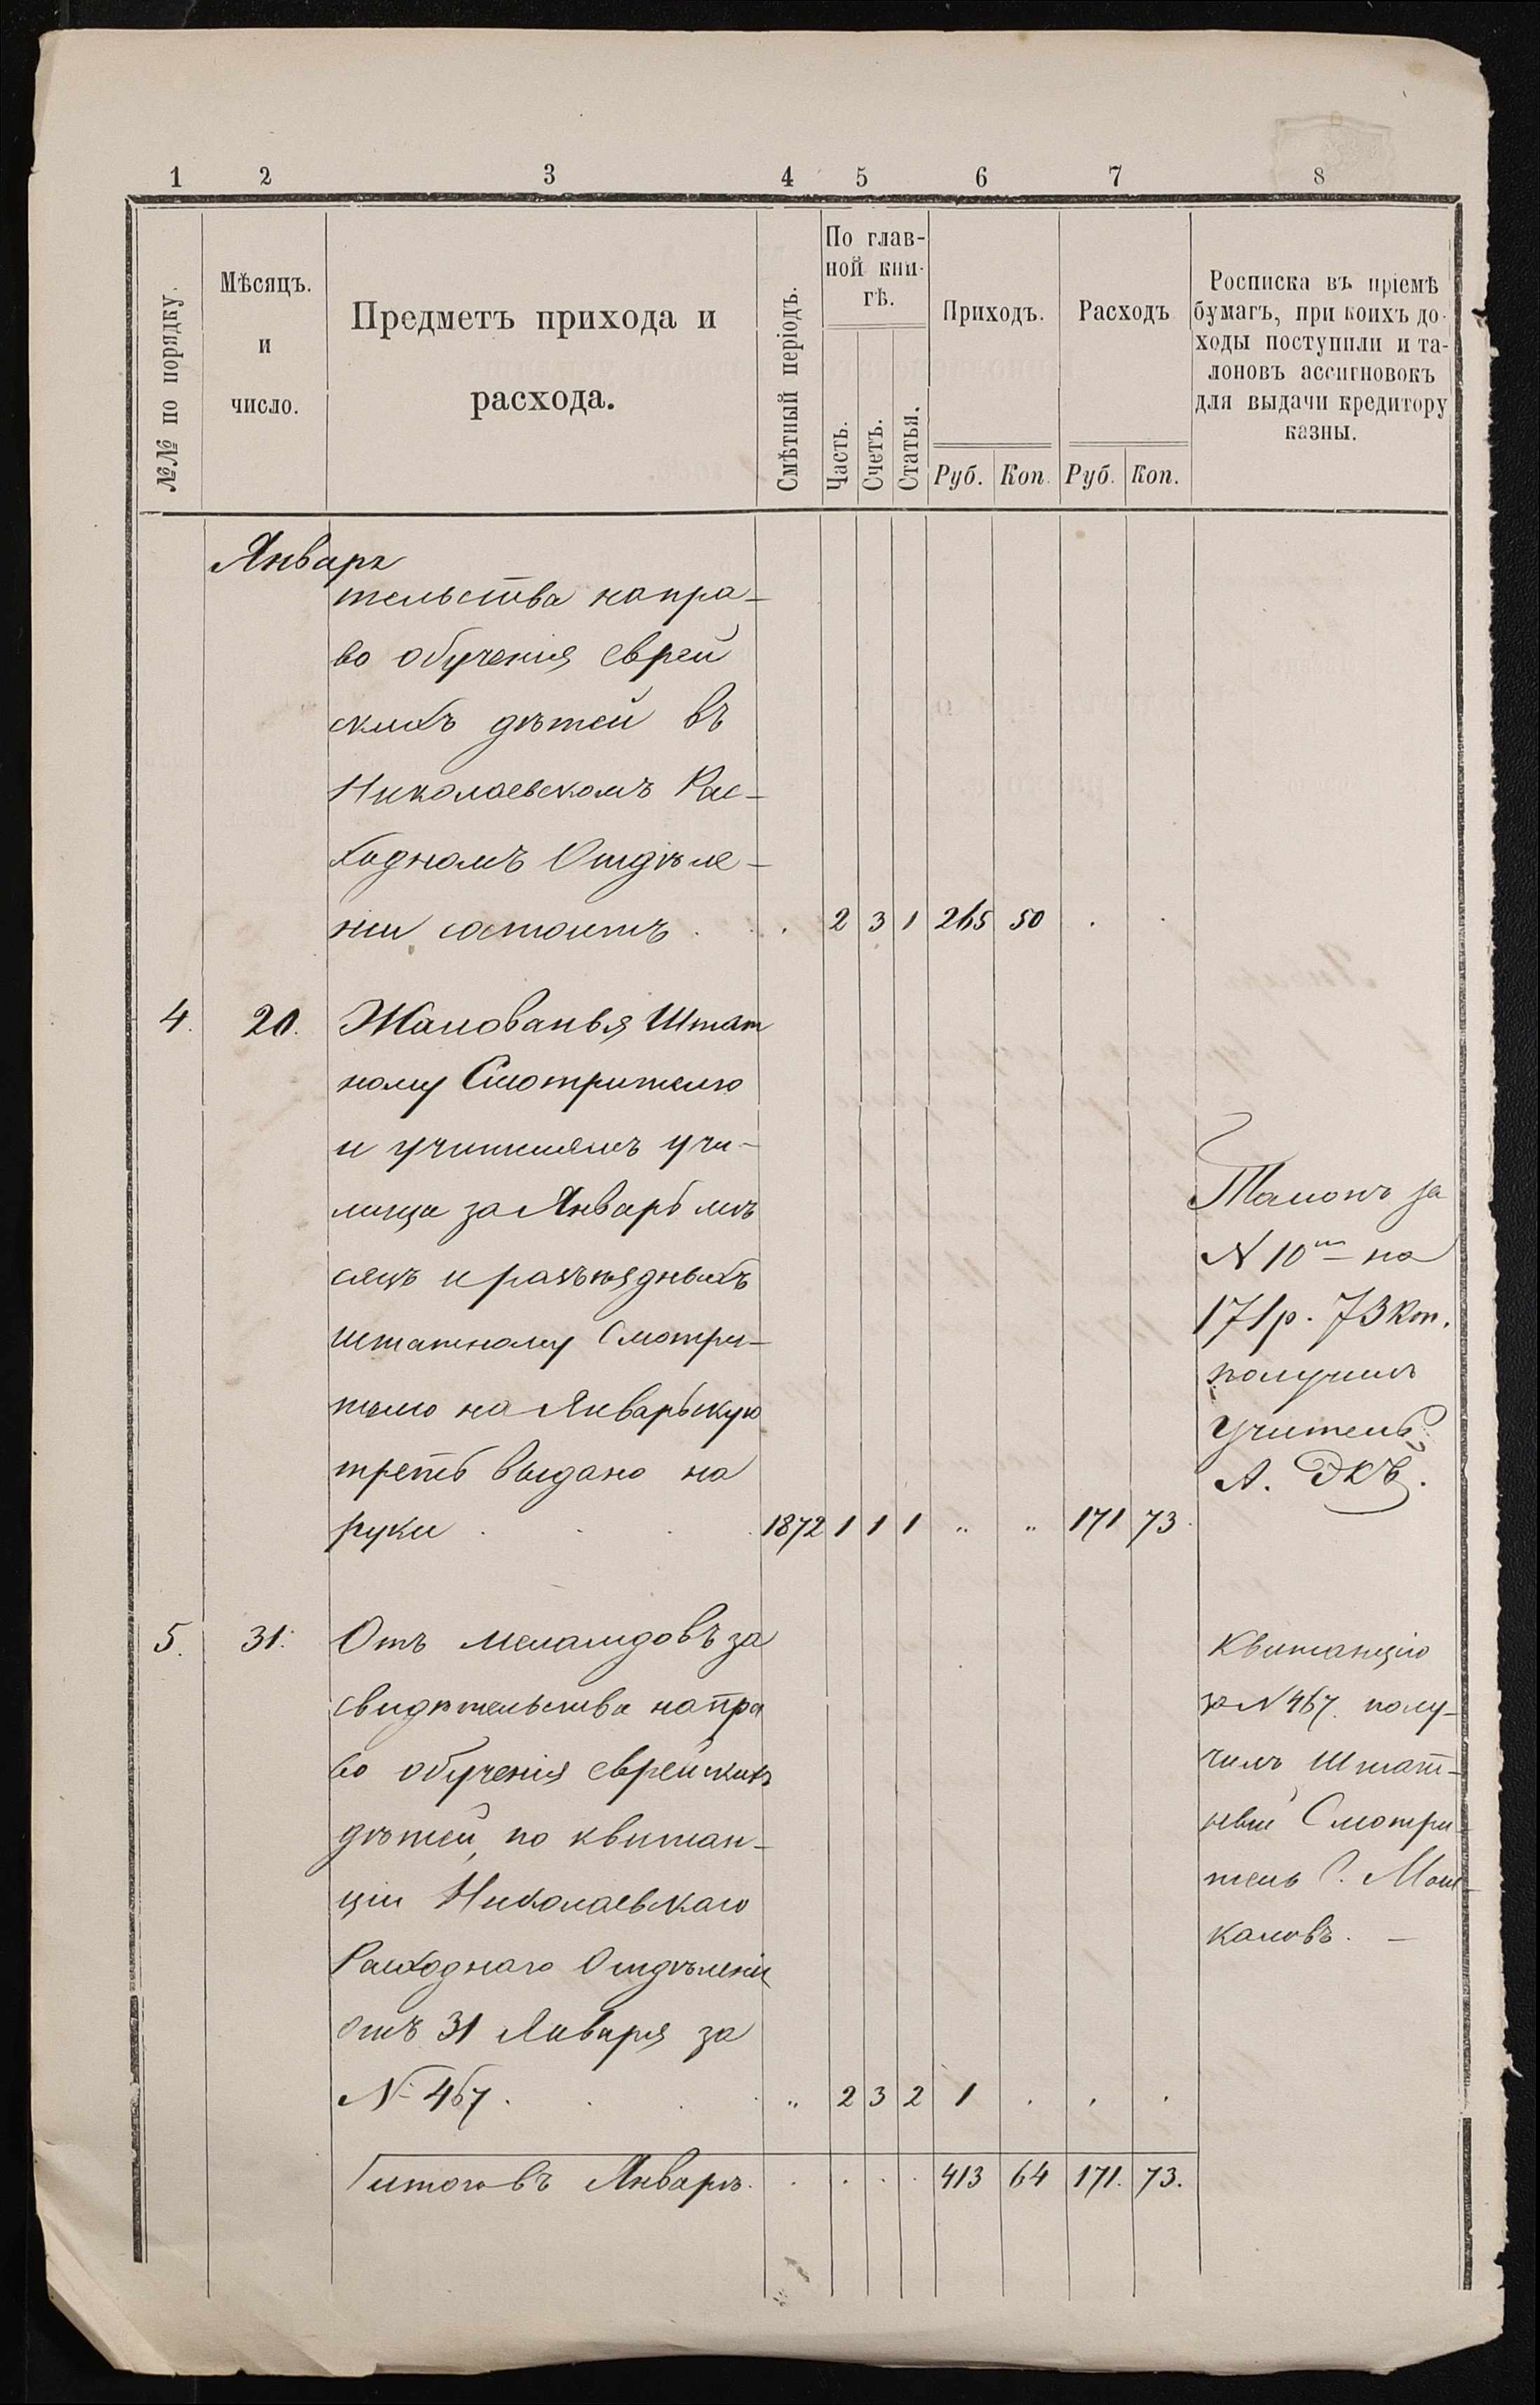 1 2 3 4 5 6 7 8
№№ по порядку.
Мѣсяцъ.
и
число.
Предметъ прихода и
расхода.
Смѣтный періодъ.
По глав-
ной кни-
гѣ.
Часть.
Счетъ.
Статья.
Приходъ.
Руб. Коп.
Расходъ
Руб. Коп.
Росписка въ пріемѣ
бумагъ, при коихъ до-
ходы поступили и та-
лоновъ ассигновокъ
для выдачи кредитору
казны.
Январь
тельства на пра-
во обученія еврей
скихъ дѣтей въ
Николаевскомъ Рас-
ходномъ Отдѣле-
ніи состоитъ . . . 2 3 1 265 50 . .
4. 20. Жалованья Штат
ному Смотрителю
и учителямъ учи-
лища за Январь мѣ
сяцъ и разъѣздныхъ
штатному Смотри-
телю на Январьскую
треть выдано на
руки . . . . 1872 1 1 1 „ „ 171 73.
Талонъ за
N 10 на
171 р. 73 коп.
получилъ
Учитель
А. Экъ.
5. 31. Отъ меламдовъ за
свидѣтельства на пра
во обученія еврейскихъ
дѣтей, по квитан-
ціи Николаевскаго
Расходнаго Отдѣленія
отъ 31 Января за
№ 467 . . . . „ 2 3 2 1 . . .
Квитанцію
за N 467. полу-
чилъ Штат-
ный Смотри-
тель
Итого въ Январѣ. . . . . 413 64 171. 73.